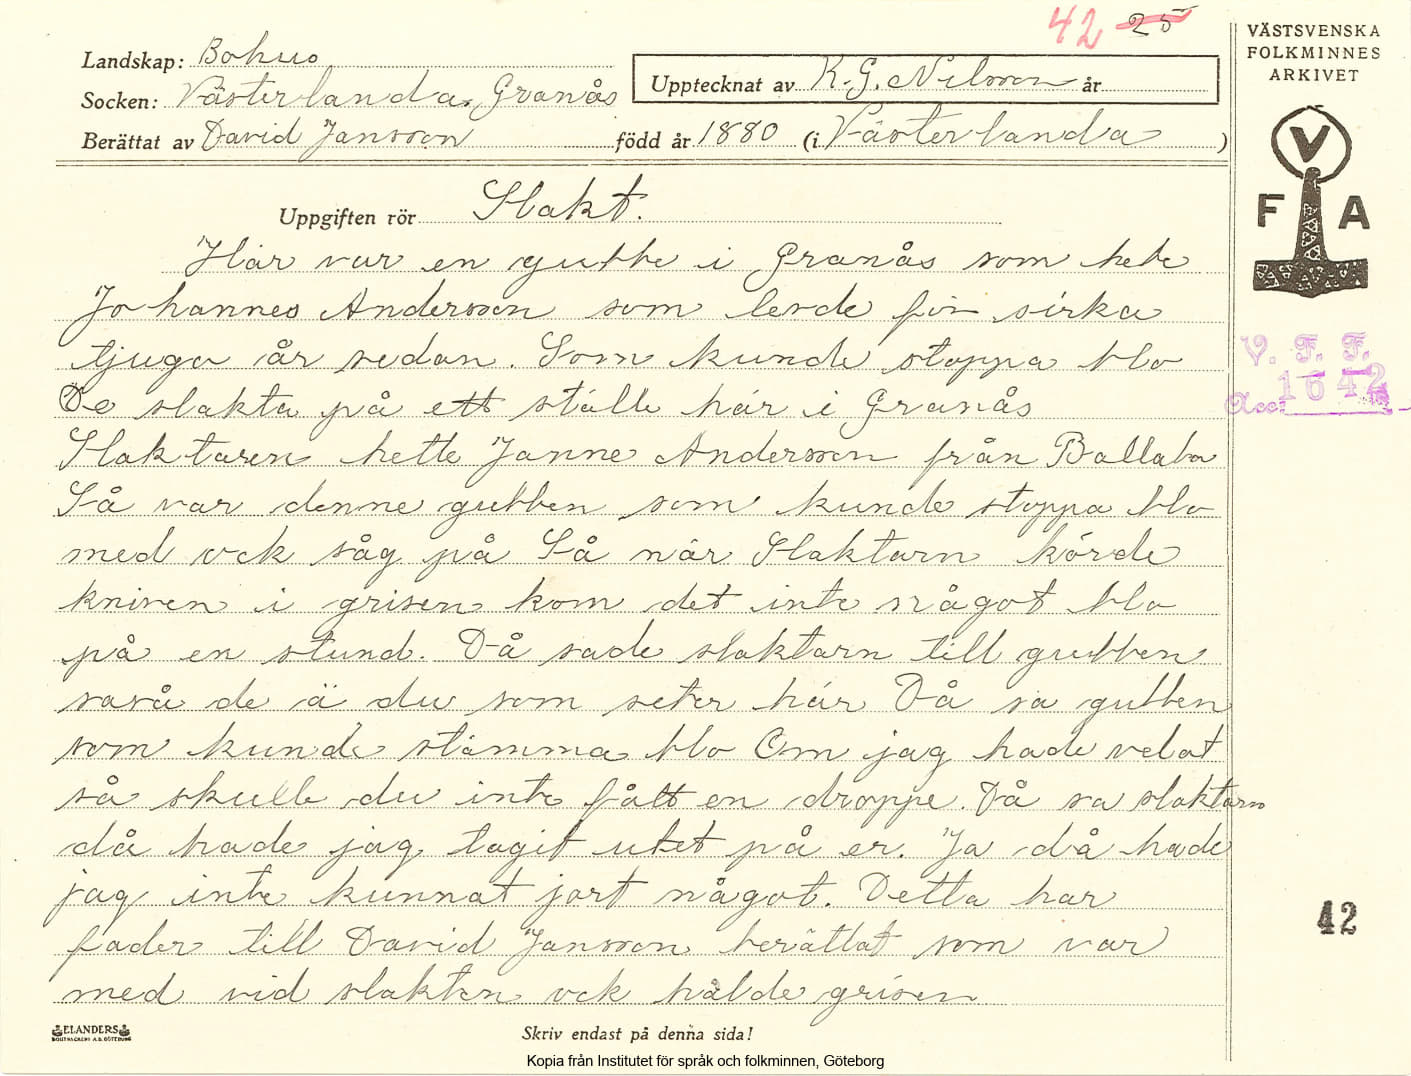 42 25
Landskap: Bohus
Socken: Västerlanda, Granås
Upptecknat av K.G. Nilsson år
Berättat av David Jansson född år 1880 (i Västerlanda )
Uppgiften rör Slakt.
Här var en gubbe i Granås som hete
Johannes Andersson som levde för sirka
tjugo år sedan. Som kunde stoppa blo
De slakta på ett ställe här i Granås
Slaktaren hette Janne Andersson från Ballabo
Så var denne gubben som kunde stoppa blo
med ock såg på Så när Slaktarn körde
kniven i grisen kom det inte något blo
på en stund. Då sade slaktarn till gubben
raså de ä du som seter här Då sa gubben
som kunde stämma blo Om jag hade velat
så skulle du inte fått en droppe. Då sa slaktarn
då hade jag tagit utet på er. Ja då hade
jag inte kunnat jort något. Detta har
fader till David Jansson berättat som var
med vid slakten ock hålde grisen
VÄSTSVENSKA
FOLKMINNES
ARKIVET
V
F A
V. F. F.
Acc: 1642
42
ELANDERS
BOKTRYCKERI A.B. GÖTEBORG
Skriv endast på denna sida!
Kopia från Institutet för språk och folkminnen, Göteborg